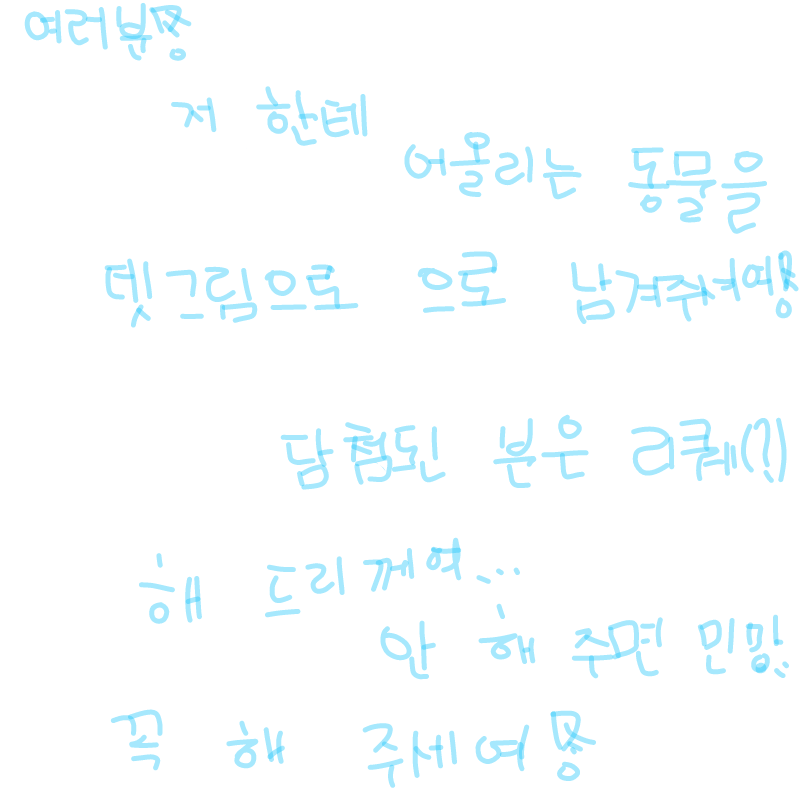 여러분쯩
저 한테
어올리는 동물을
뎃그림으로 으로 남겨주서영
담첨된 분은 리퀘(?)
해 드리께여...
안 해 주면 민망..
꼭 해 줘세여쫑